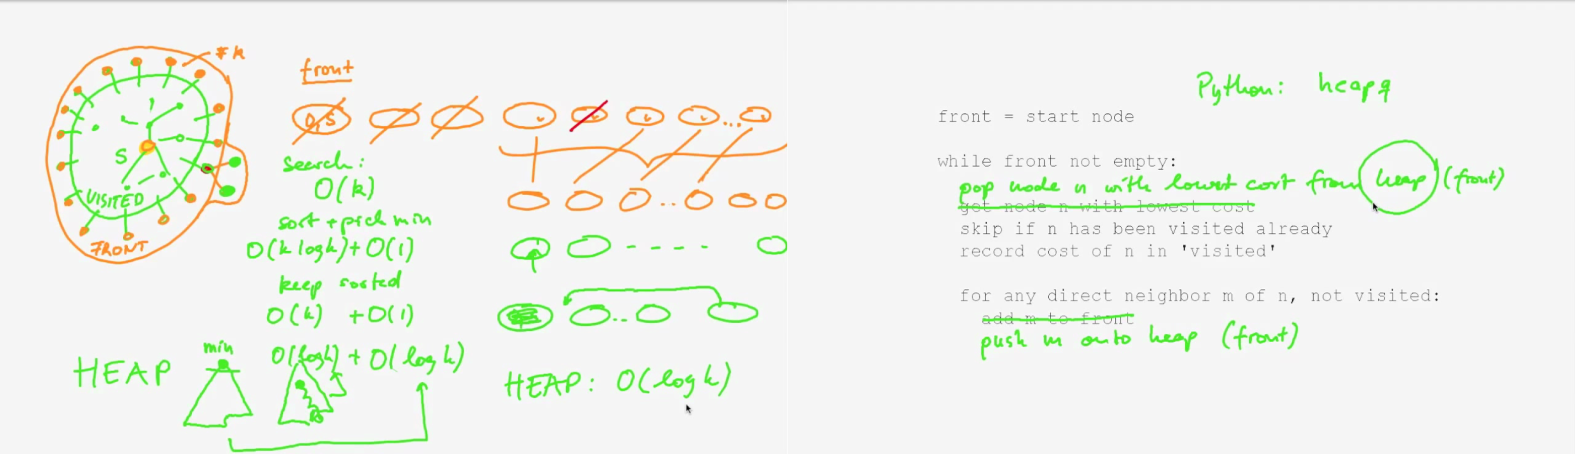 #k
front
0,S
S
VISITED
FRONT
search:
O(k)
sort + pick min
O(k logk) + O(1)
keep sorted
O(k) + O(1)
HEAP
min
O(logk) + O(log k)
HEAP: O(log k)
Python: heapq
front = start node
while front not empty:
pop node n with lowest cost from heap (front)
get node n with lowest cost
skip if n has been visited already
record cost of n in 'visited'
for any direct neighbor m of n, not visited:
add m to front
push m onto heap (front)